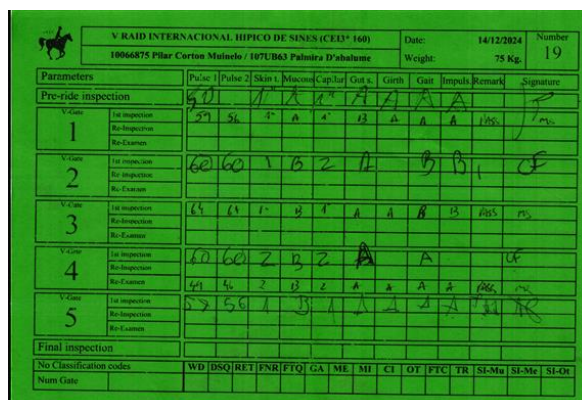 V RAID INTERNACIONAL HIPICO DE SINES (CEI3* 160) Date: 14/12/2024 Number
10066875 Pilar Corton Muinelo / 107UB63 Palmira D'abalume Weight: 75 Kg. 19
Parameters Pulse 1 Pulse 2 Skin t. Mucous Capilar Gut s. Girth Gait Impuls. Remark Signature
Pre-ride inspection 50 1" A 1" A A A A
V-Gate 1 1st inspection 59 56 1" A 1" B A A A PASS MS
Re-Inspection
Re-Examen
V-Gate 2 1st inspection 60 60 1 B 2 A B B CF
Re-Inspection
Re-Examen
V-Gate 3 1st inspection 64 61 1" B 1" A A B B PASS MS
Re-Inspection
Re-Examen
V-Gate 4 1st inspection 60 60 2 B 2 A A CF
Re-Inspection
Re-Examen 49 46 2 B 2 A A A A PASS
V-Gate 5 1st inspection 58 56 1 B 1 A A A A
Re-Inspection
Re-Examen
Final inspection
No Classification codes WD DSQ RET FNR FTQ GA ME MI CI OT FTC TR SI-Mu SI-Me SI-Ot
Num Gate